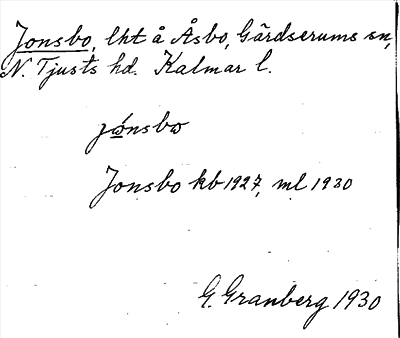 Jonsbo, lht å Åsbo, Gärdserums sn,
N. Tjusts hd. Kalmar l.
jónsbo
Jonsbo kb 1927, ml 1930
G. Granberg 1930